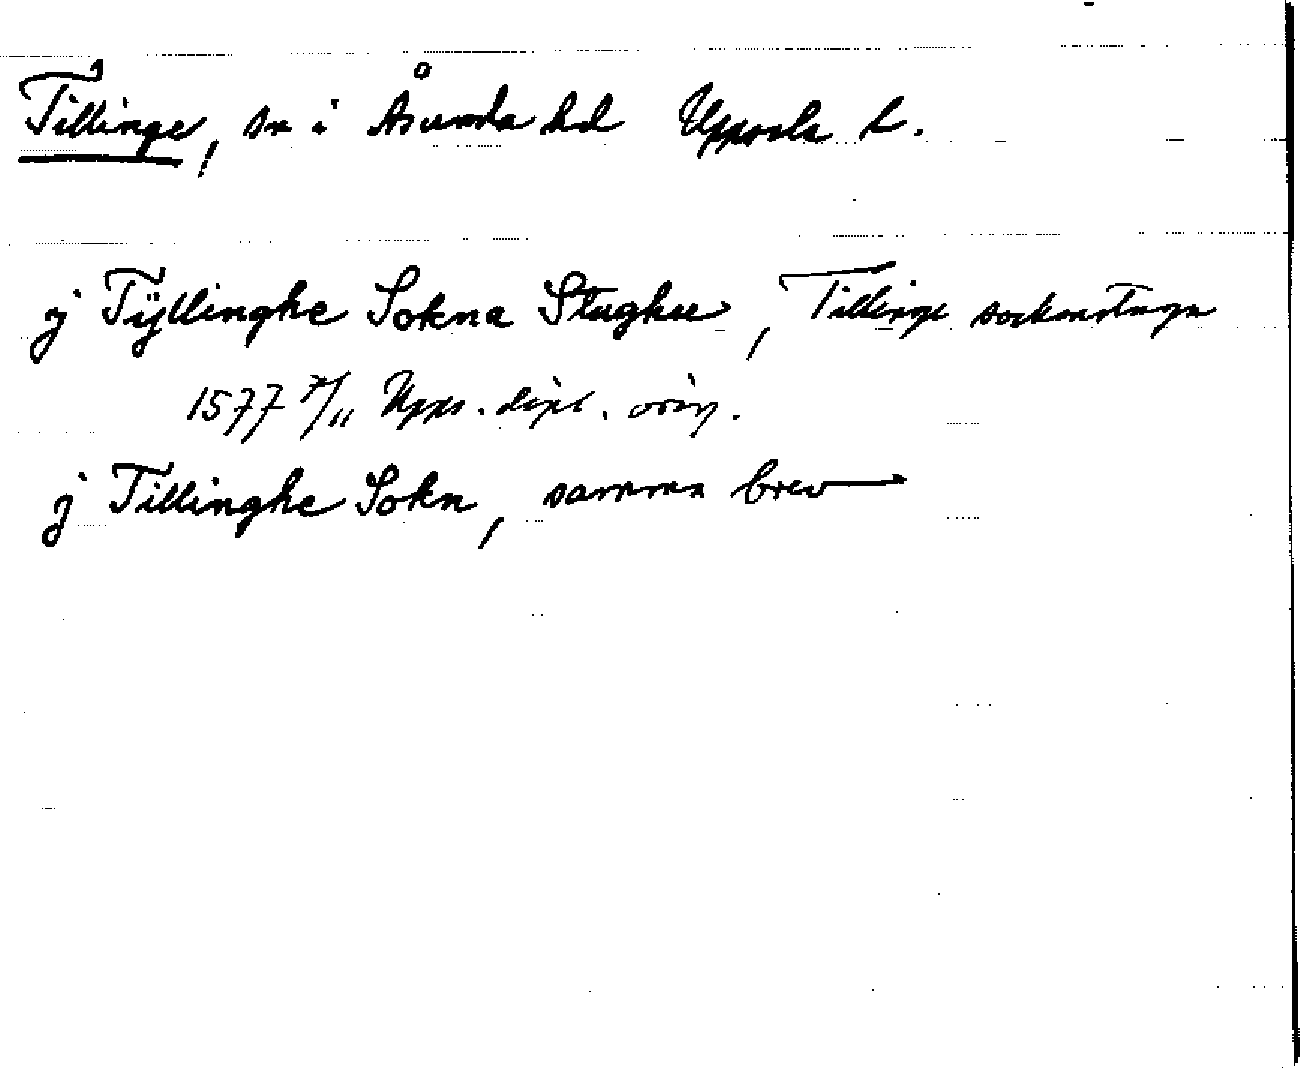 Tillinge, sn i Åsunda hd Uppsala l.
j Tÿllinghe Sokna Stughu, Tillinge sockenstuga
1577 7/11 Upps. dipl. orig.
j Tillinghe Sokn, samma brev